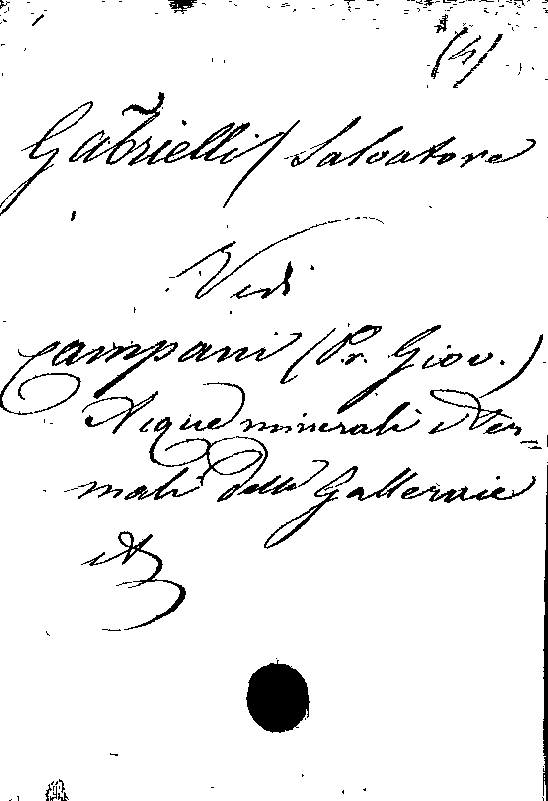 (4)
Gabrielli / Salvatore
Vedi
Campani (Pr. Giov.)
Acque minerali e ter=
mali delle Galleraie